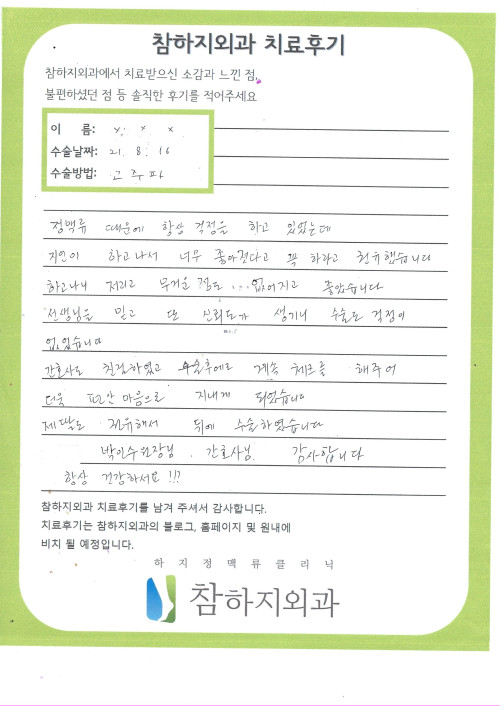 참하지외과 치료후기
참하지외과에서 치료받으신 소감과 느낀 점,
불편하셨던 점 등 솔직한 후기를 적어주세요
이 름: x x x
수술날짜: 21. 8. 16
수술방법: 고주파
정맥류 때문에 항상 걱정을 하고 있었는데
지인이 하고나서 너무 좋아졌다고 꼭 하라고 권유했습니다
하고나니 저리고 무거운 점도 ... 없어지고 좋았습니다
선생님을 믿고 또 신뢰도가 생기니 수술도 걱정이
없었습니다
간호사도 친절하였고 수술후에도 계속 체크를 해주어
더욱 편안 마음으로 지내게 되었습니다
제 딸도 권유해서 뒤에 수술하였습니다
박인수원장님, 간호사님, 감사합니다
항상 건강하세요!!!
참하지외과 치료후기를 남겨 주셔서 감사합니다.
치료후기는 참하지외과의 블로그, 홈페이지 및 원내에
비치 될 예정입니다.
하지정맥류클리닉
참하지외과